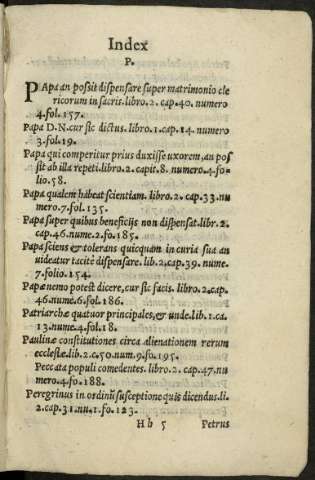 Index
P.
PApa an possit dispensare super matrimonio cle
ricorum in sacris. libro. 2. cap. 40. numero
4. fol. 157.
Papa D. N. cur sic dictus. libro. 1. cap. 14. numero
3. fol. 19.
Papa qui comperitur prius duxisse uxorem, an pos
sit ab illa repeti. libro. 2. capit. 8. numero. 4. fo-
lio. 58.
Papa qualem habeat scientiam. libro. 2. cap. 33. nu
mero. 7. fol. 135.
Papa super quibus beneficijs non dispensat. libr. 2.
cap. 46. nume. 2. fo. 185.
Papa sciens & tolerans quicquam in curia sua an
uideatur tacitè dispensare. lib. 2. cap. 39. nume.
7. folio. 154.
Papæ nemo potest dicere, cur sic facis. libro. 2. cap.
46. nume. 6. fol. 186.
Patriarchæ quatuor principales, & unde. lib. 1. ca.
13. nume. 4. fol. 18.
Paulinæ constitutiones circa alienationem rerum
ecclesiæ. lib. 2. c. 50. num. 9. fo. 195.
Peccata populi comedentes. libro. 2. cap. 47. nu
mero. 4. fo. 188.
Peregrinus in ordinū susceptione quis dicendus. li.
2. cap. 31. nu. 1. fo. 123.
Hh 5 Petrus